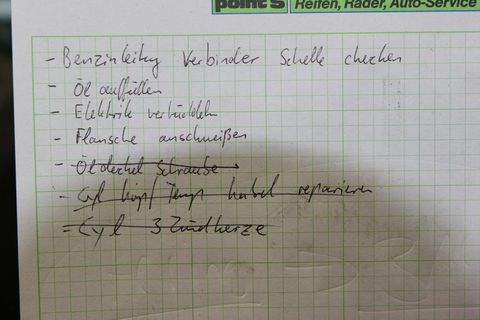 point S Reifen, Räder, Auto-Service
- Benzinleitung Verbinder Schelle checken
- Öl auffüllen
- Elektrik
- Flansche anschweißen
- Öldeckel Schraube
- Cyl Kopf Temp kabel reparieren
- Cyl 3 Zündkerze